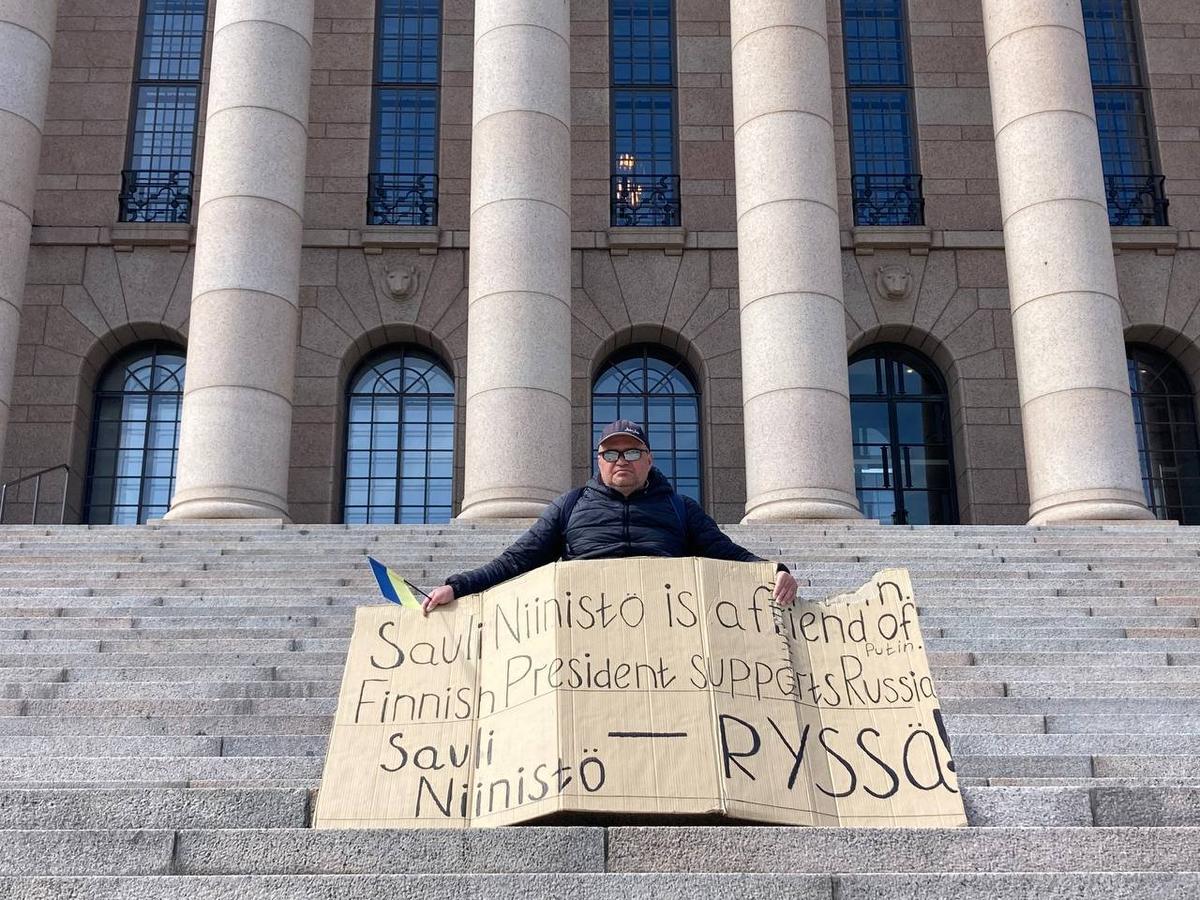 Sauli Niinistö is a friend of
Putin.
Finnish President supports Russia
Sauli
Niinistö — RYSSÄ!